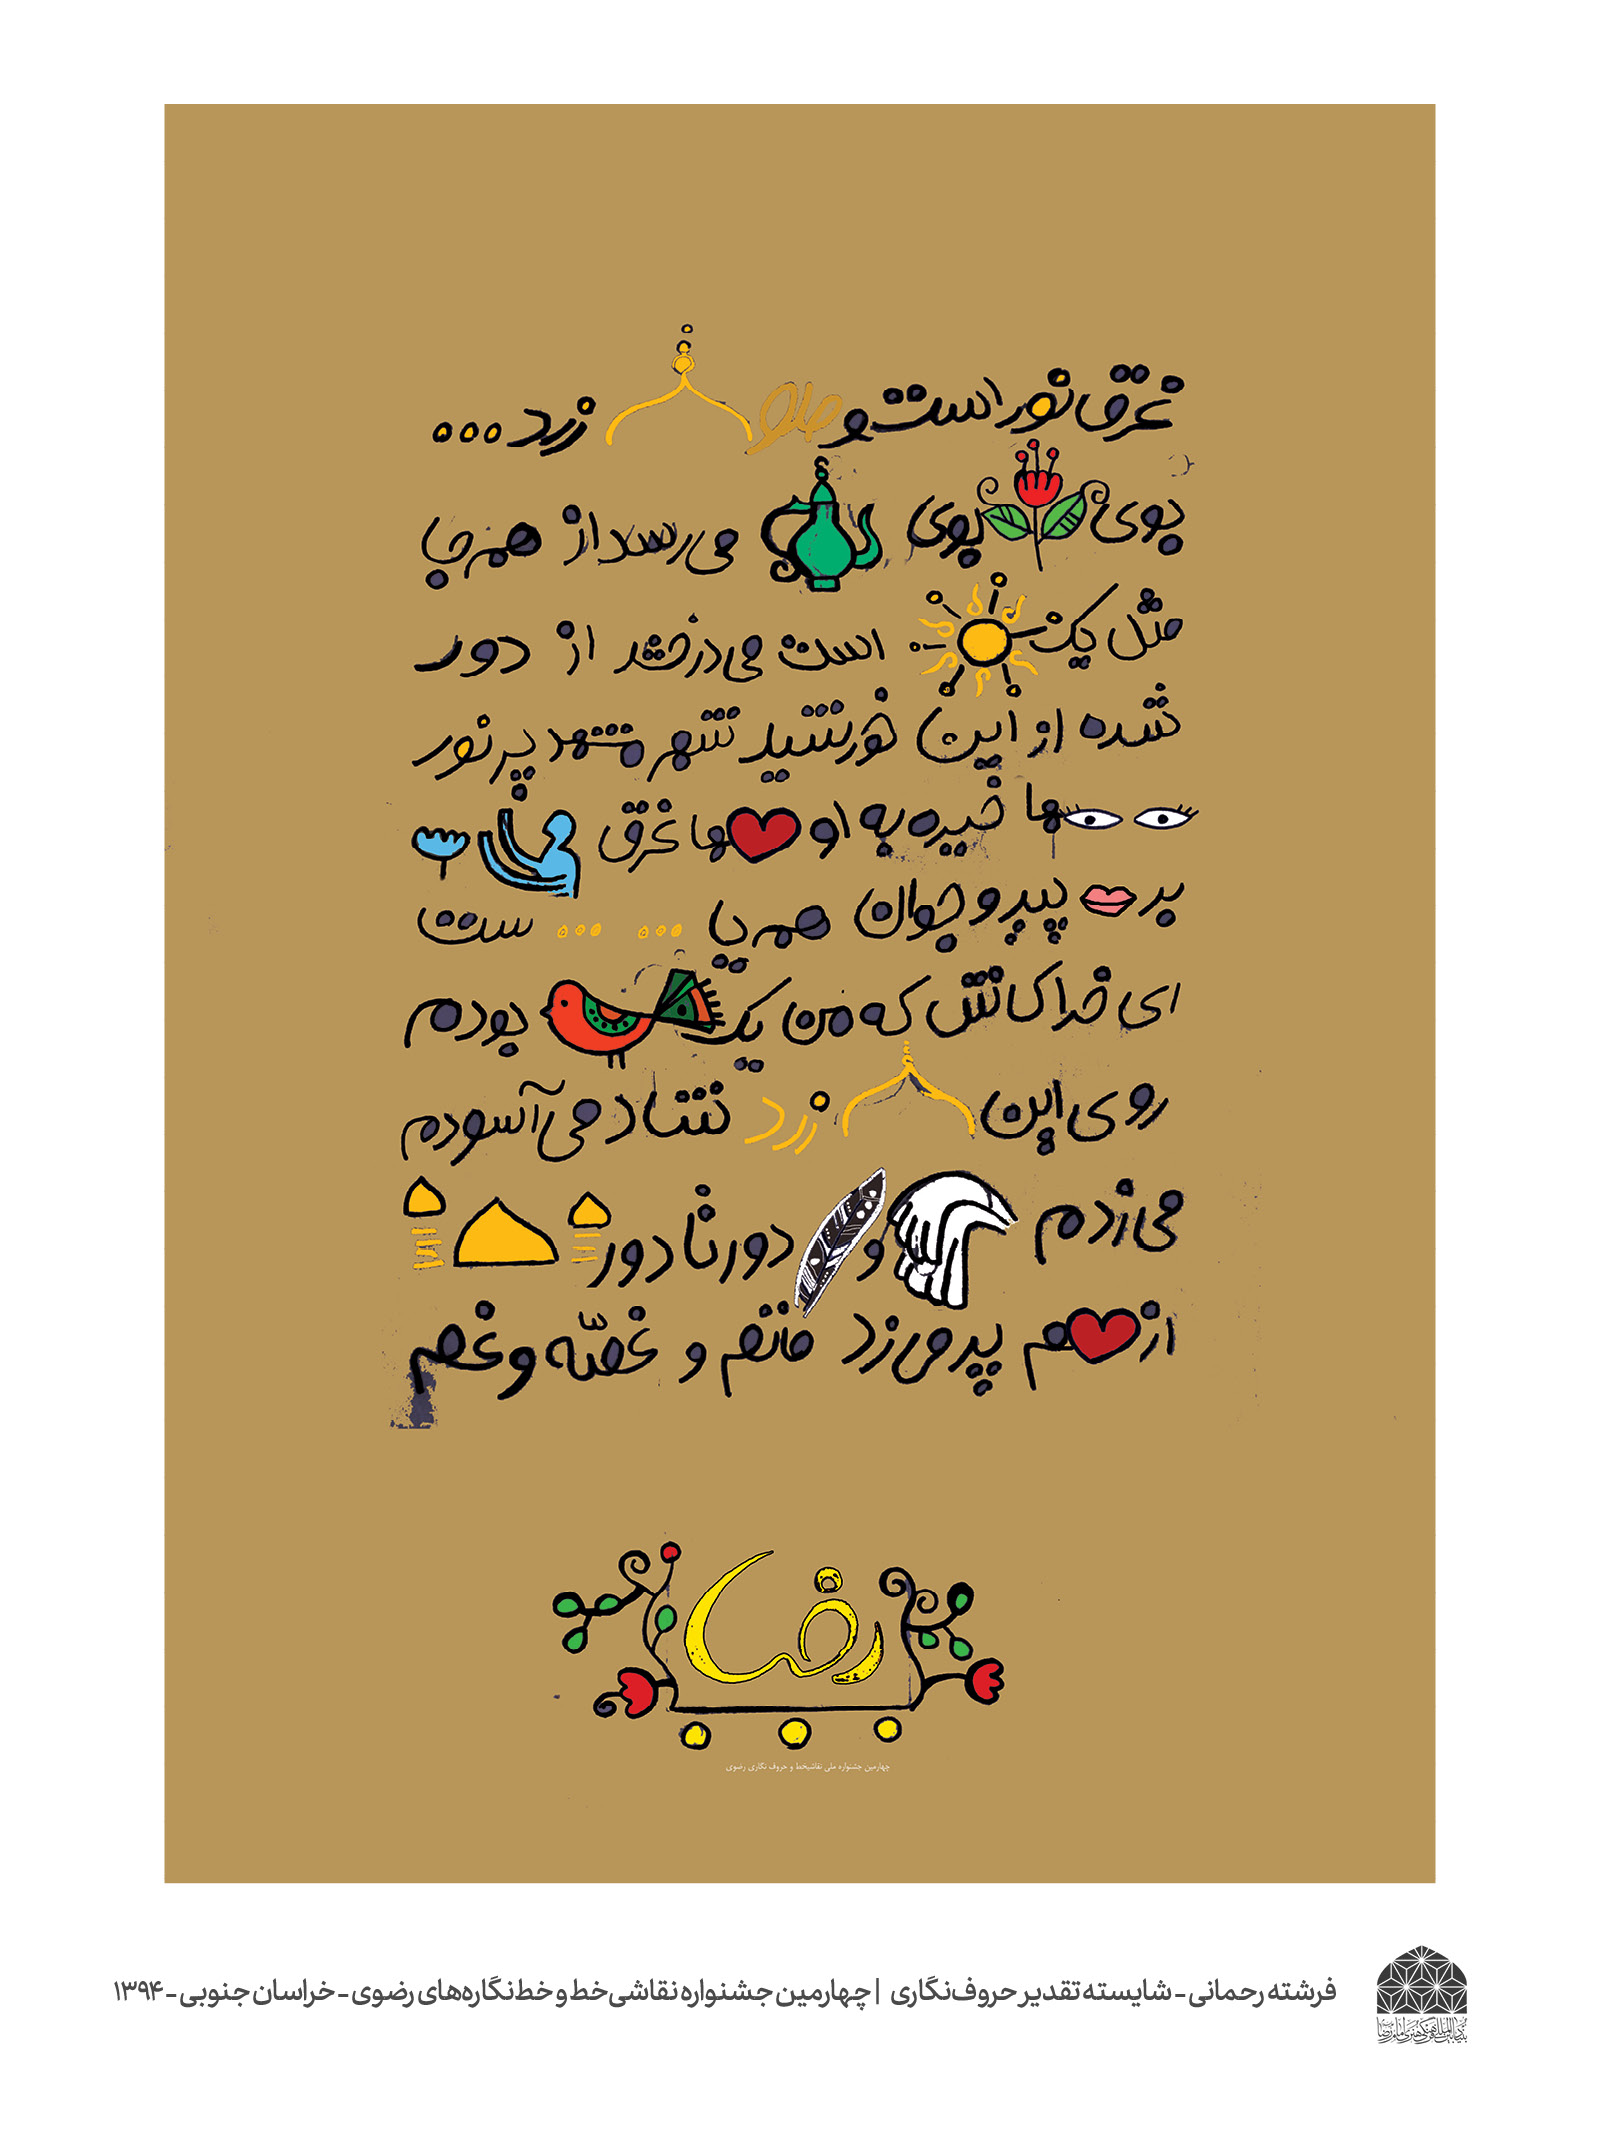 غرق نور است و طلا زرد...
بوی بوی می‌رسد از همه جا
مثل یک است می‌درخشد از دور
شده از این خورشید شهر مشهد پر نور
ها خیره به او ها غرق
بر پیر و جوان همه یا ... ... ست
ای خدا کاش که من یک بودم
روی این زرد شاد می‌آسودم
می‌زدم و دور تا دور
از هم پر می‌زد ماتم و غصّه و غم
رضا
چهارمین جشنواره ملی نقاشیخط و حروف نگاری رضوی
فرشته رحمانی - شایسته تقدیر حروف‌نگاری | چهارمین جشنواره نقاشی‌خط و خط‌نگاره‌های رضوی - خراسان جنوبی - ۱۳۹۴
بنیاد بین‌المللی فرهنگی هنری امام رضا